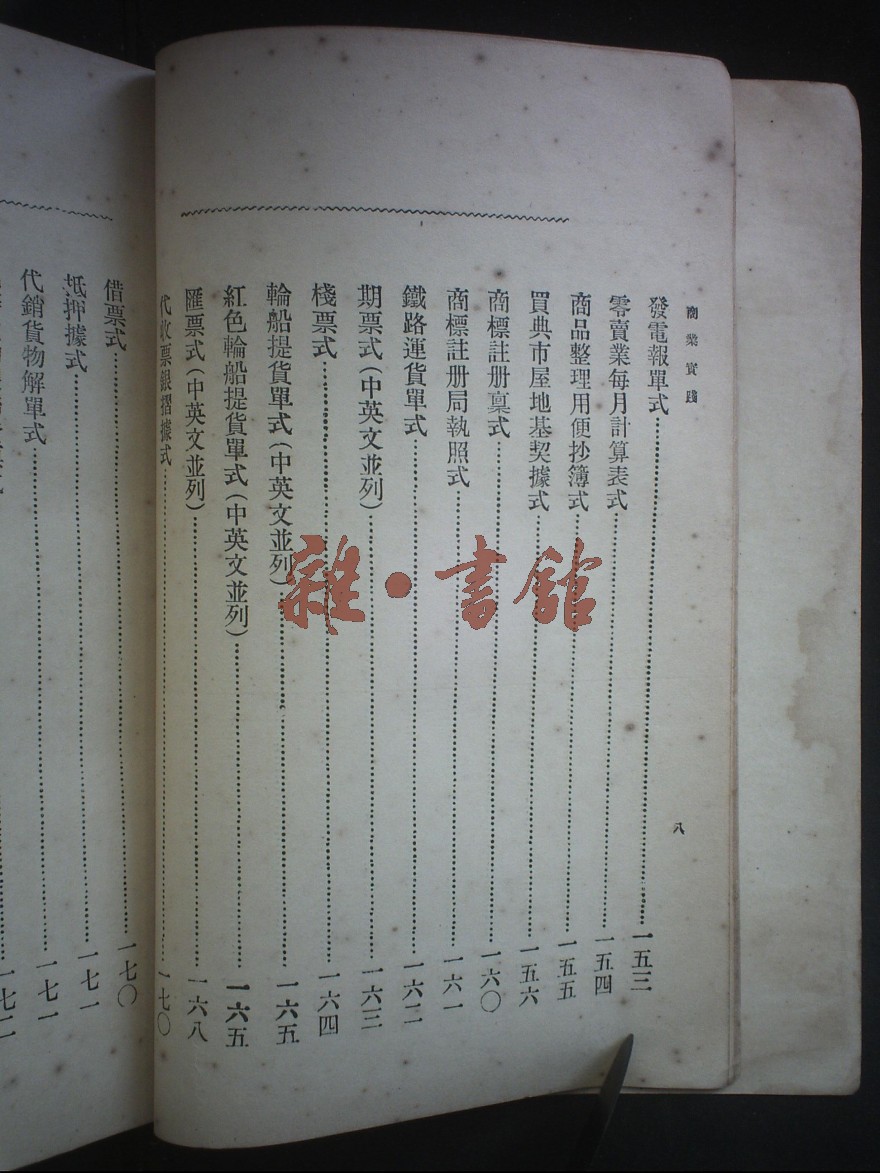 商業實踐
八
發電報單式⋯⋯一五三
零賣業每月計算表式⋯⋯一五四
商品整理用便抄簿式⋯⋯一五五
買典市屋地基契據式⋯⋯一五六
商標註册稟式⋯⋯一六〇
商標註册局執照式⋯⋯一六一
鐵路運貨單式⋯⋯一六二
期票式(中英文並列)⋯⋯一六三
棧票式⋯⋯一六四
輪船提貨單式(中英文並列)⋯⋯一六五
紅色輪船提貨單式(中英文並列)⋯⋯一六五
匯票式(中英文並列)⋯⋯一六八
代收票銀摺據式⋯⋯一七〇
借票式⋯⋯一七〇
抵押據式⋯⋯一七一
代銷貨物解單式⋯⋯一七一
一七二
雜·書館